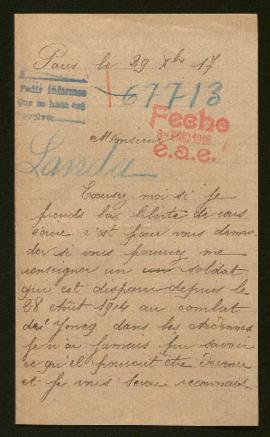 Paris le 29 Xbre 17
Pedir informes
que se hace ca
67713
Fecho
1918
e.a.e.
Monsieur
Landa
Excusez moi si je
prends la liberté de vous
écrire c'est pour vous deman-
der si vous pourriez me
renseigner un un soldat
qui est disparu depuis le
28 Août 1914 au combat
de Yoncq dans les Ardennes
je n'ai jamais pu savoir
ce qu'il pouvait être devenu
et je vous serai reconnais-